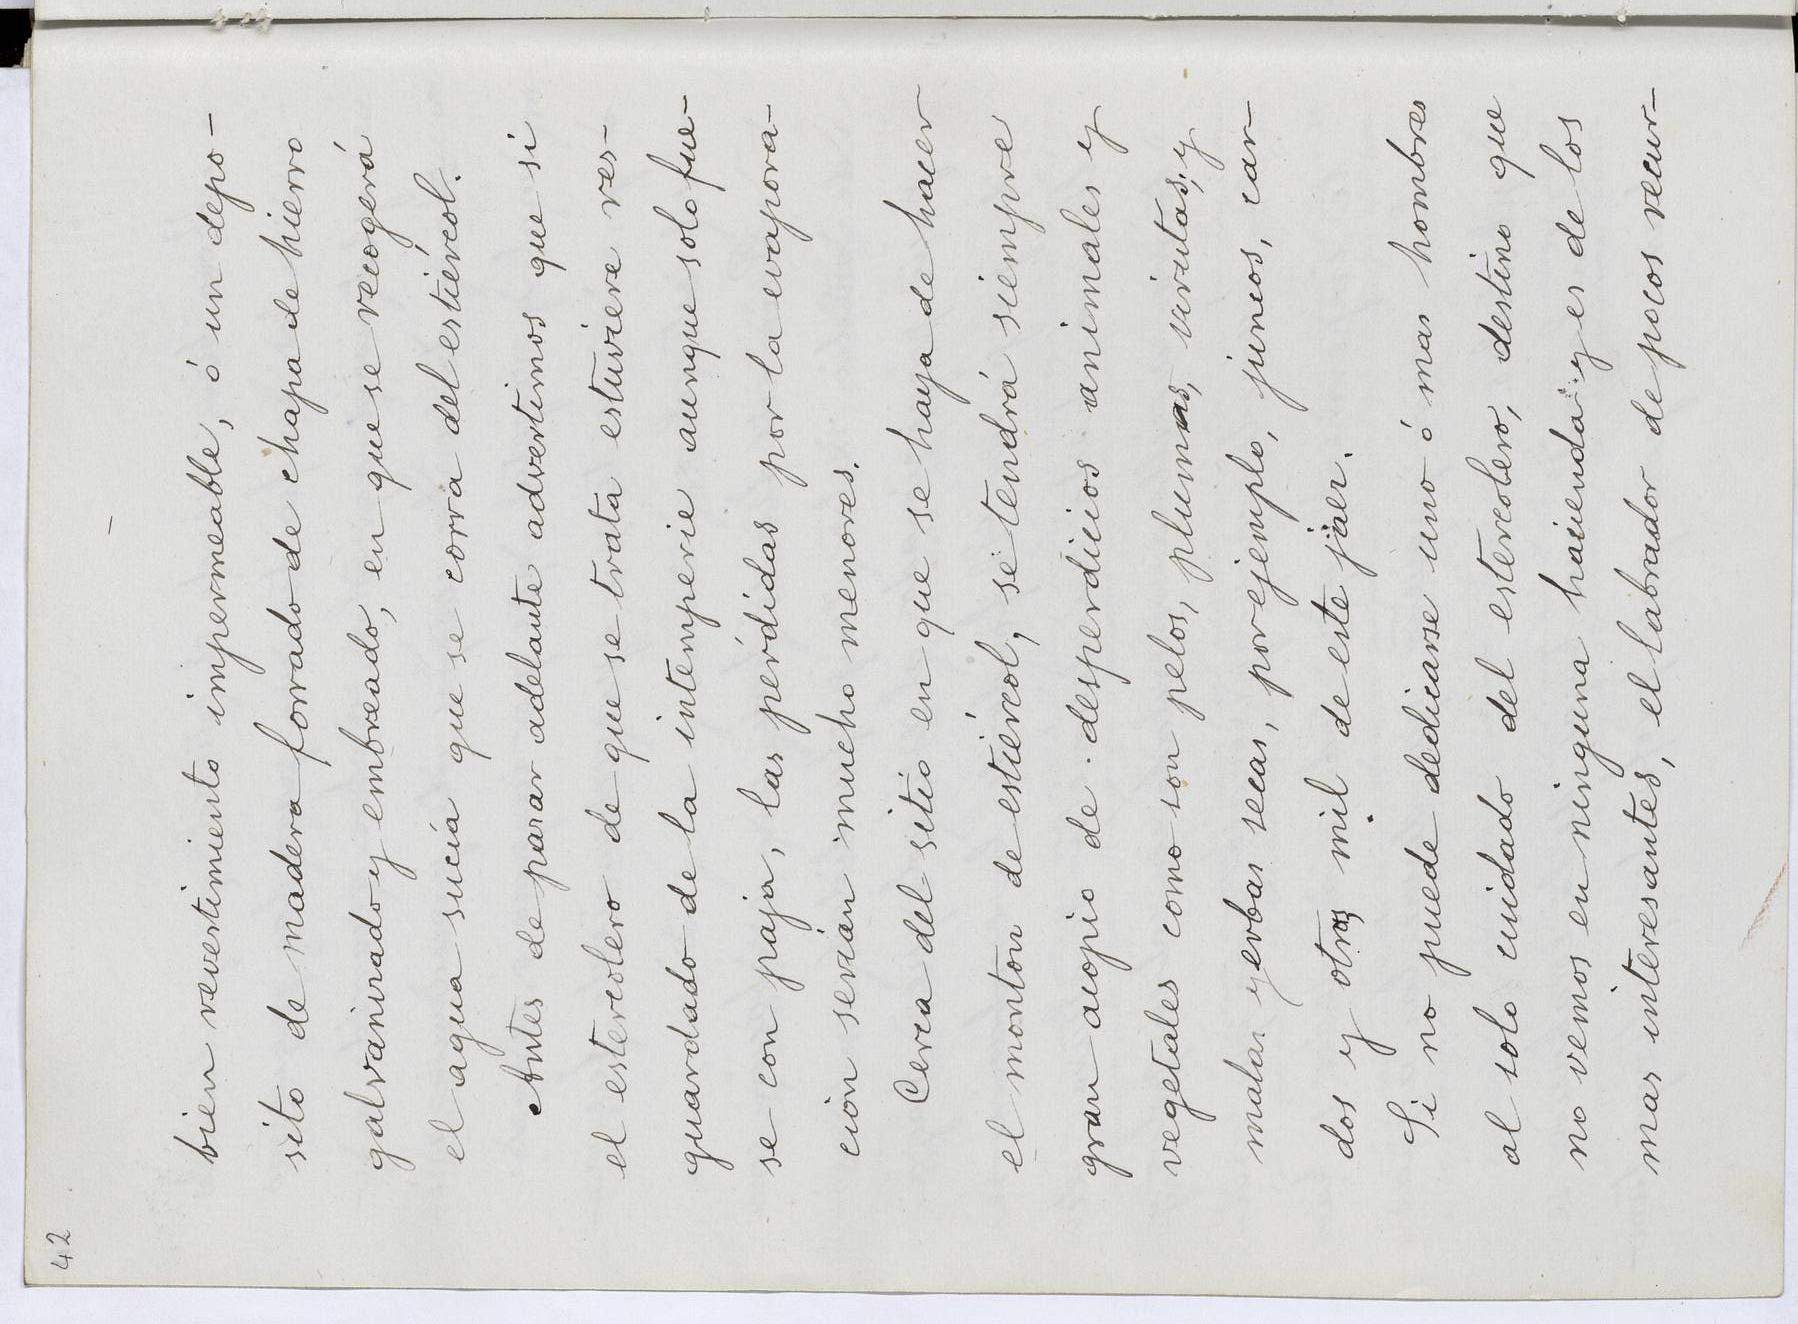 42
bien revertimiento impermeable, ó un depo-
sito de madera forrado de chapa de hierro
galvanizado y embreado, en que se recogerá
el agua sucia que se corra del estiércol.
Antes de parar adelante advertimos que si
el estercolero de que se trata estuviere res-
guardado de la intemperie aunque solo fue-
se con paja, las pérdidas por la evapora-
ción serían mucho menores.
Cerca del sitio en que se haya de hacer
el monton de estiércol, se tendrá siempre
gran acopio de desperdicios animales y
vegetales como son pelos, plumas, virutas, y
malas yerbas secas, por ejemplo, juncos, car-
dos y otros mil de este jaez.
Si no puede dedicarse uno ó mas hombres
al solo cuidado del estercolero, destino que
no vemos en ninguna hacienda y es de los
mas interesantes, el labrador de pocos recur-